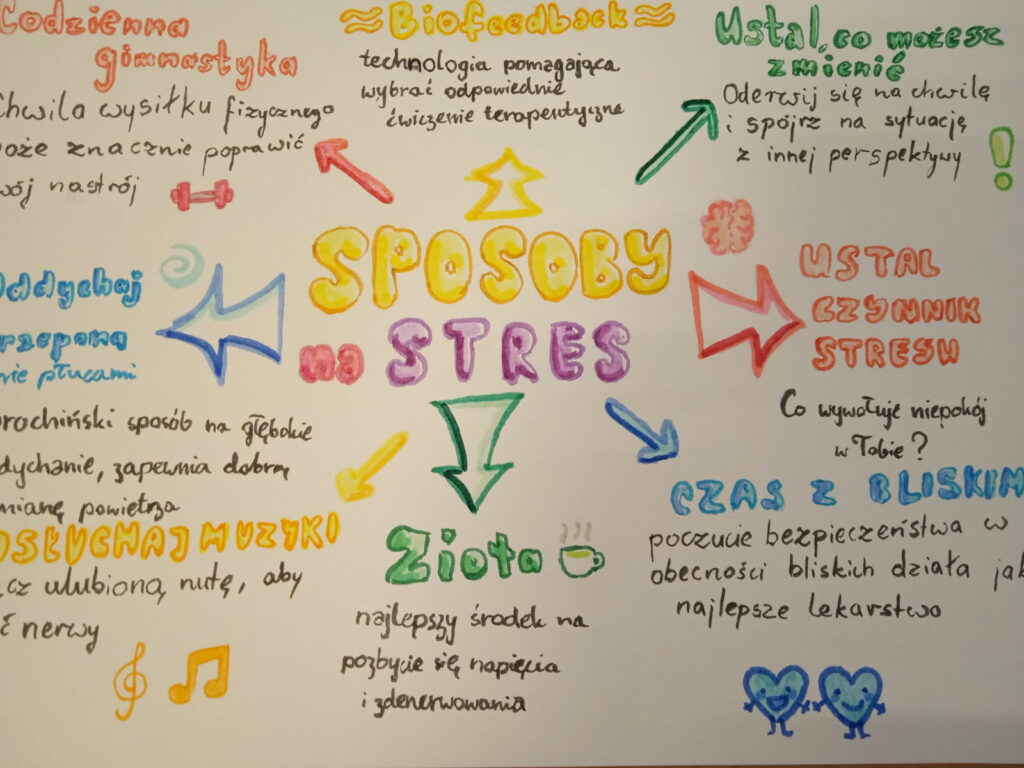 Codzienna
gimnastyka
Chwila wysiłku fizycznego
oże znacznie poprawić
wój nastrój
≈ Biofeedback ≈
technologia pomagająca
wybrać odpowiednie
ćwiczenie terapeutyczne
Ustal, co możesz
zmienić
Oderwij się na chwilę
i spójrz na sytuację
z innej perspektywy
!
SPOSOBY
na STRES
Oddychaj
rzepona
nie płucami
prochiński sposób na głębokie
dychanie, zapewnia dobrą
mianę powietrza
USTAL
CZYNNIK
STRESU
Co wywołuje niepokój
w Tobie?
OSŁUCHAJ MUZYKI
cz ulubioną nutę, aby
ć nerwy
Zioła
najlepszy środek na
pozbycie się napięcia
i zdenerwowania
CZAS Z BLISKIM
poczucie bezpieczeństwa w
obecności bliskich działa jak
najlepsze lekarstwo